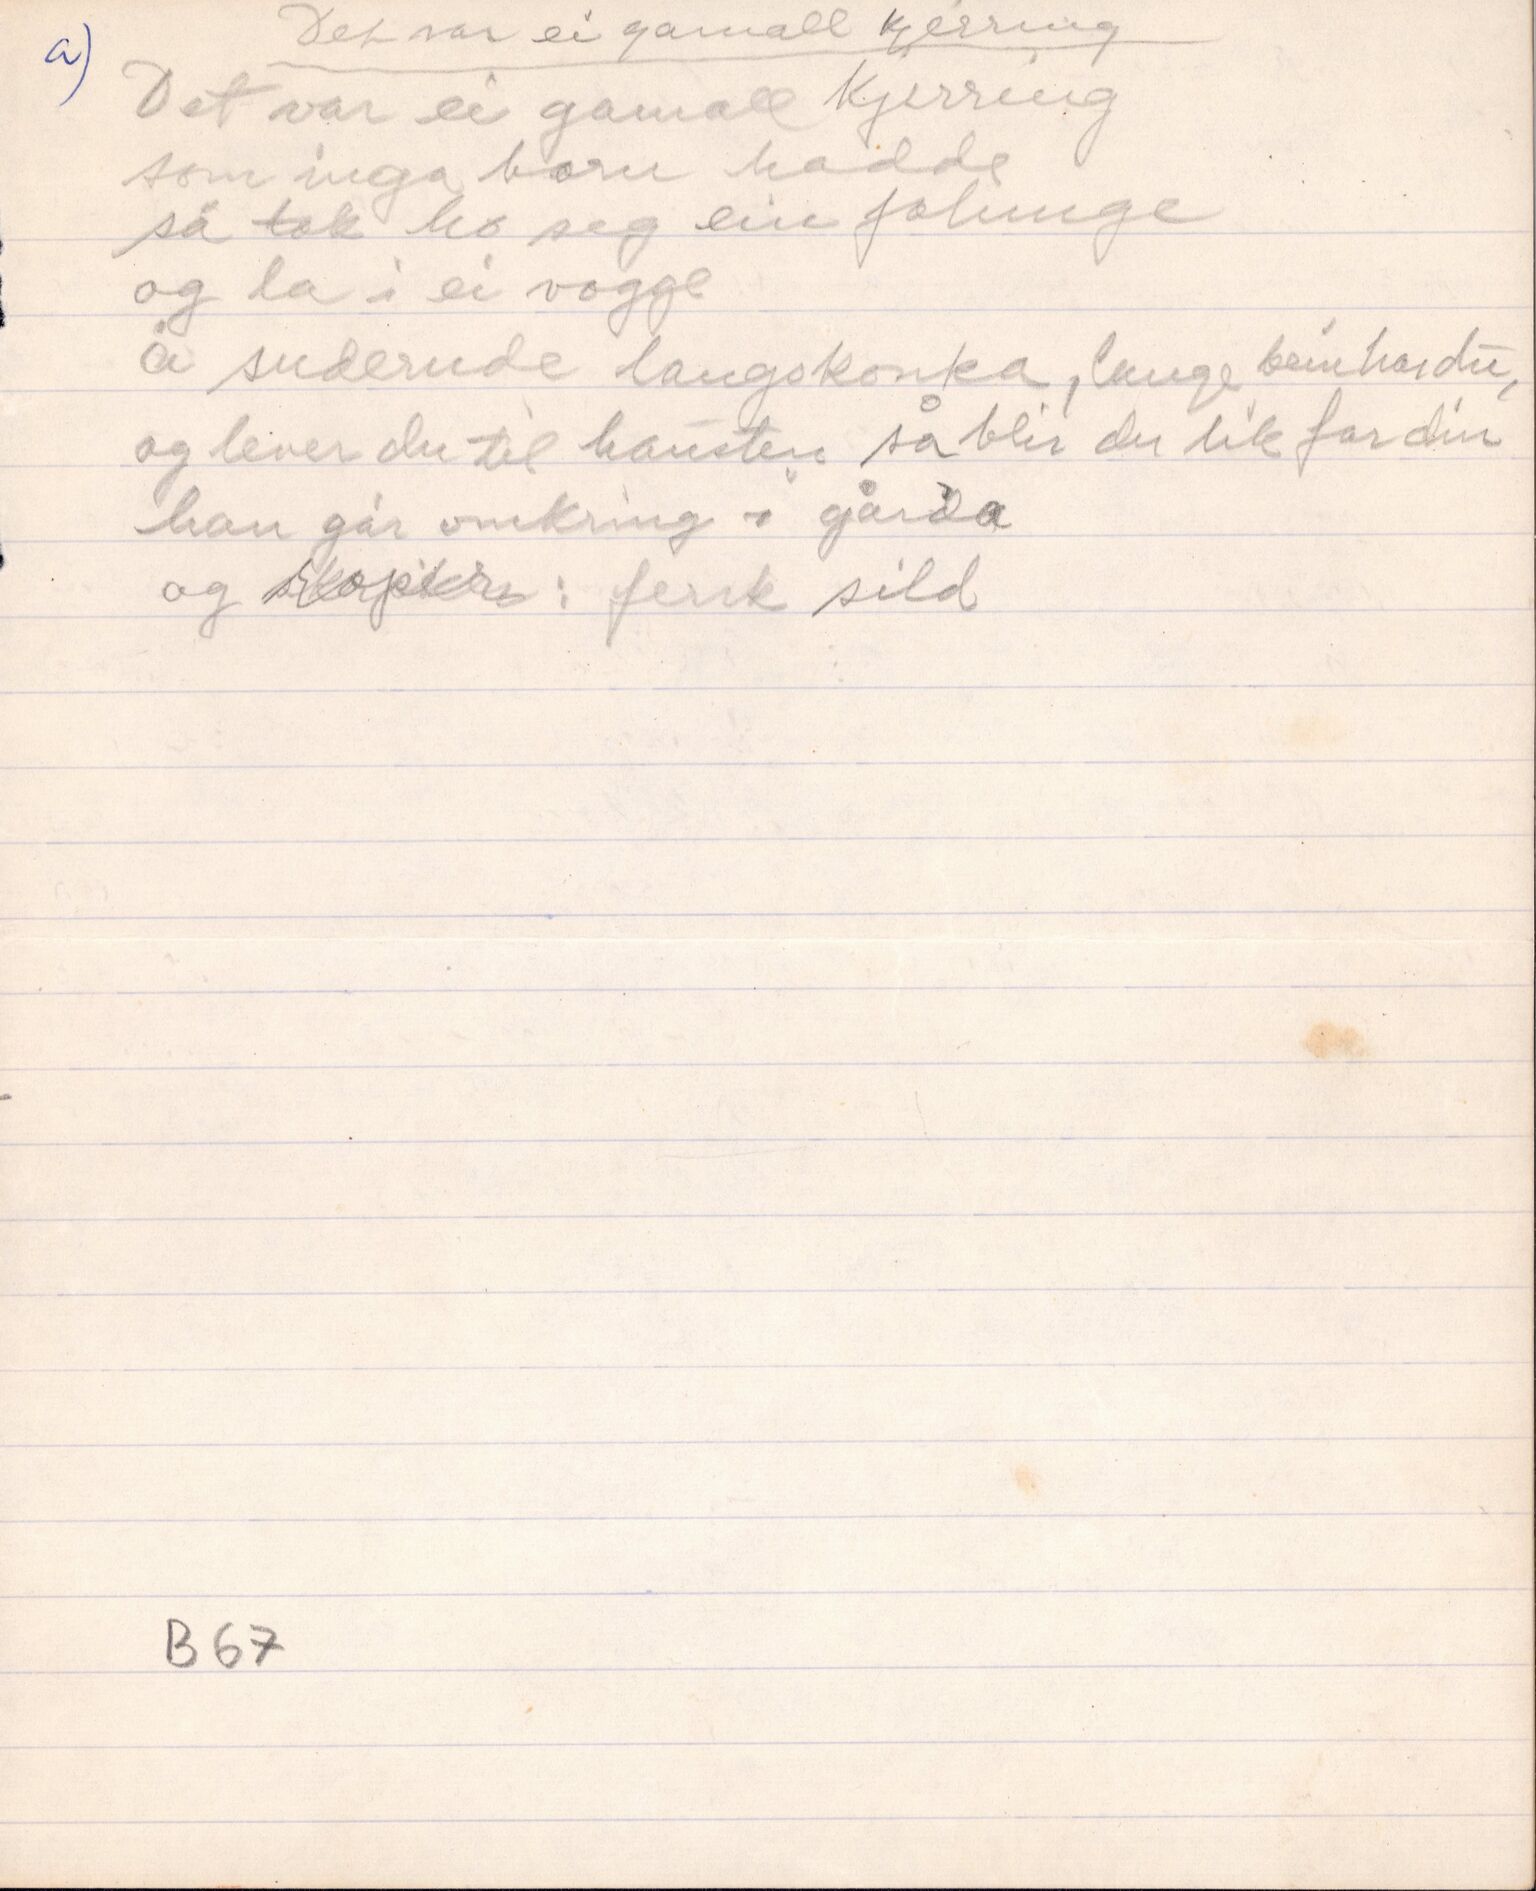 Det var ei gamall kjerring
a)
Det var ei gamall Kjerring
som inga born hadde
så tok ho seg ein folunge
og la i ei vogge
å suderude langskonka, lange bein har du,
og lever du til hausten så blir du lik far din
han går omkring i gårda
og i fersk sild
B 67